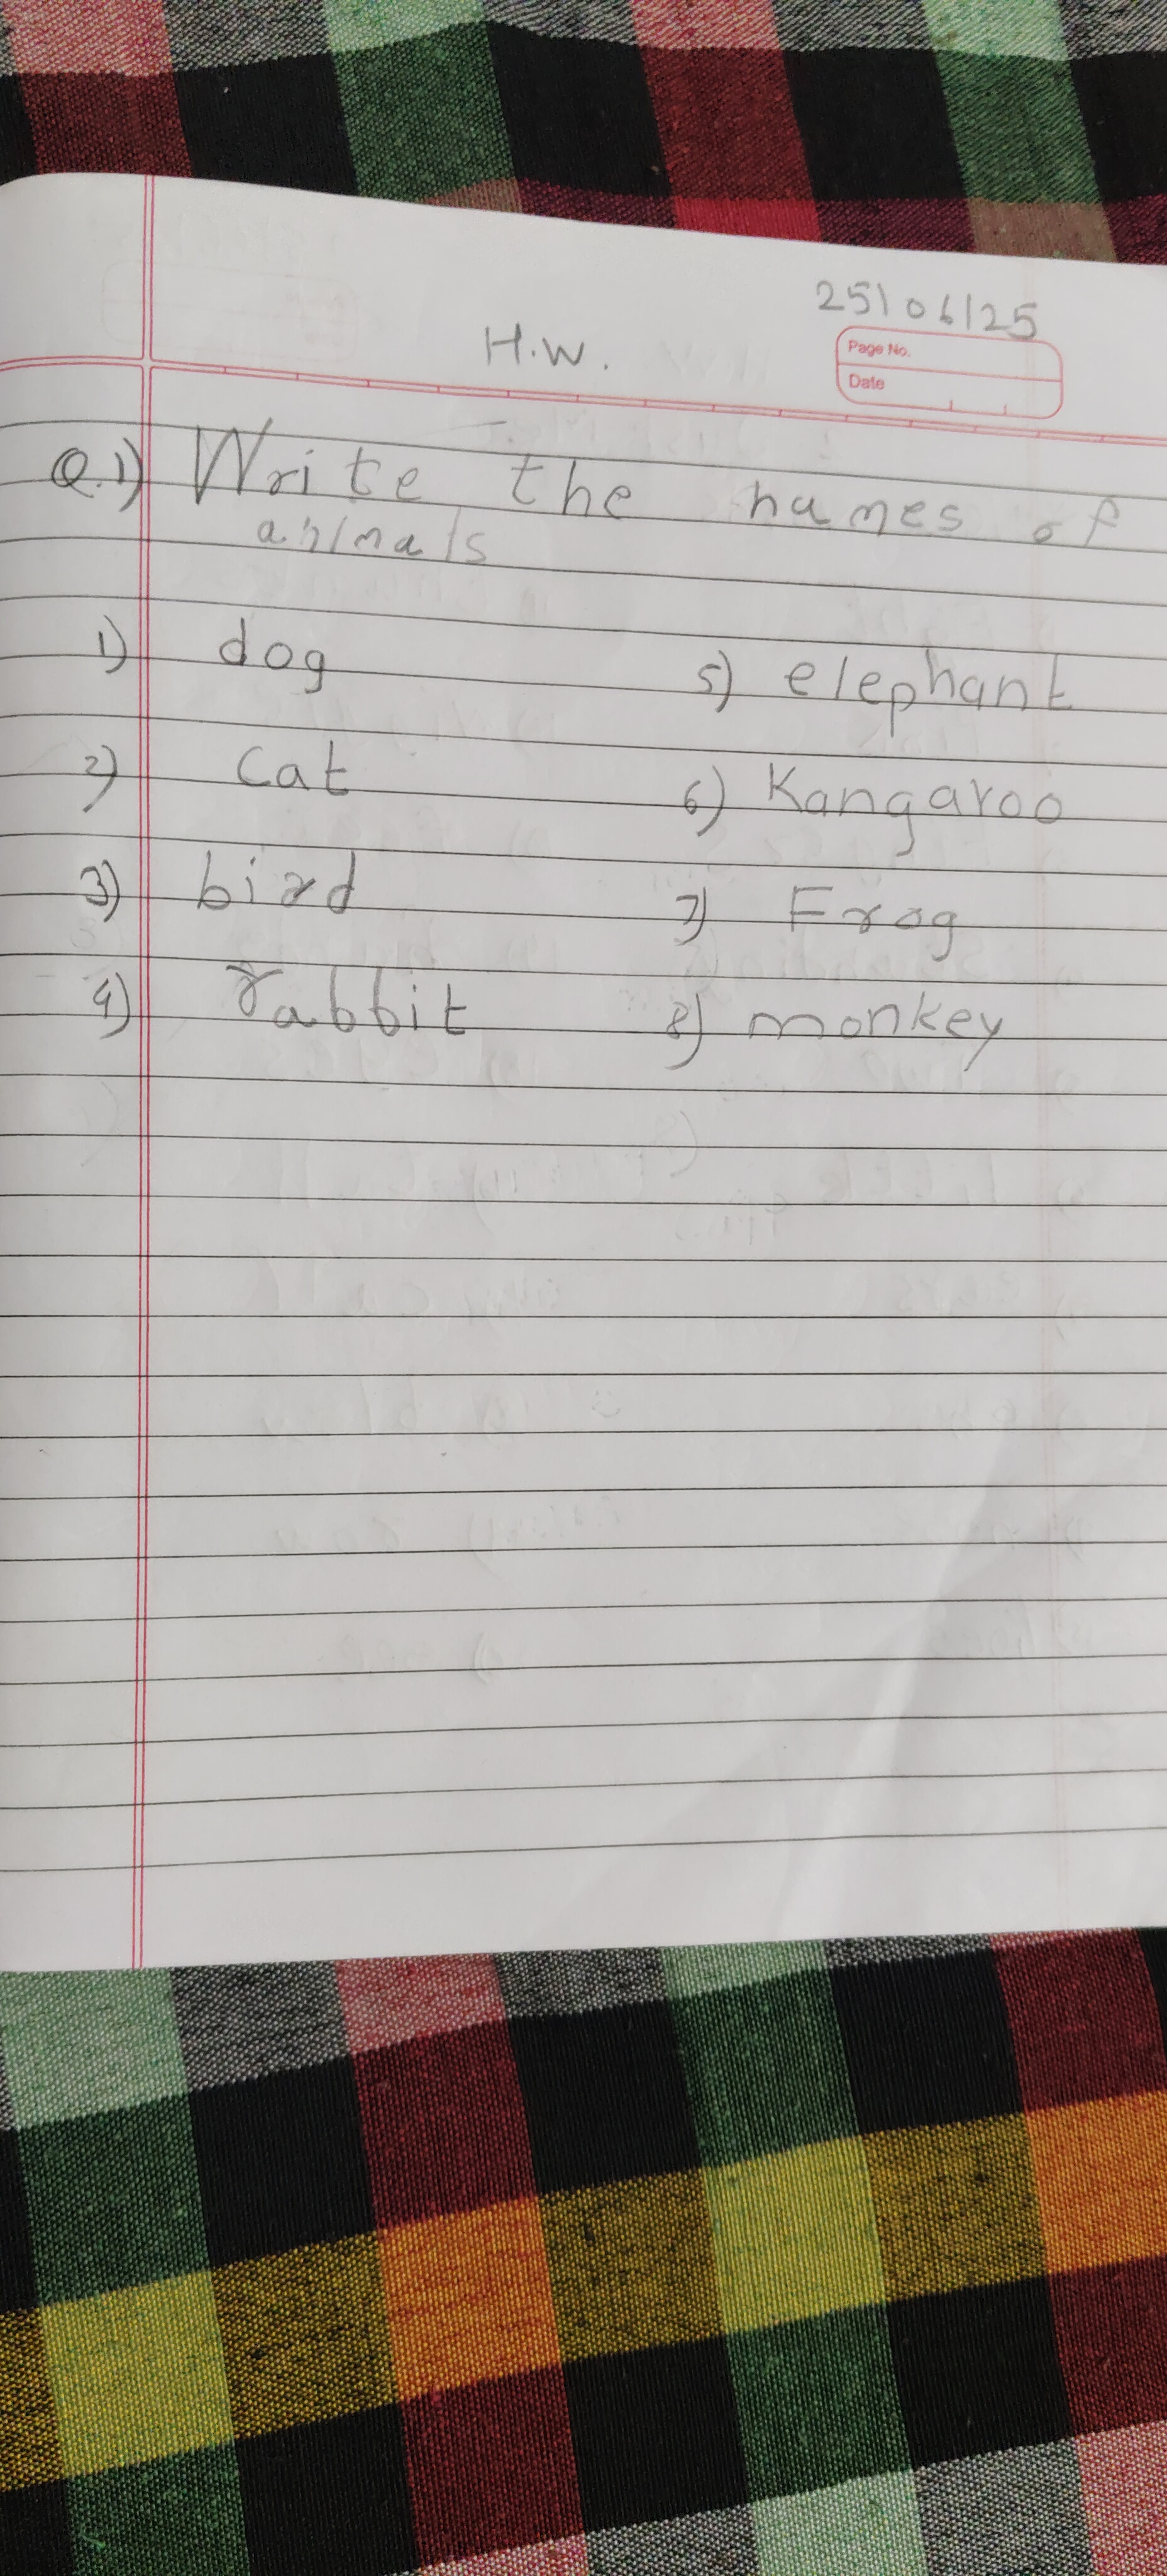 25/06/25
H.W.
Page No.
Date
Q.1) Write the names of
animals
1) dog
5) elephant
2) cat
6) Kangaroo
3) bird
7) Frog
4) rabbit
8) monkey